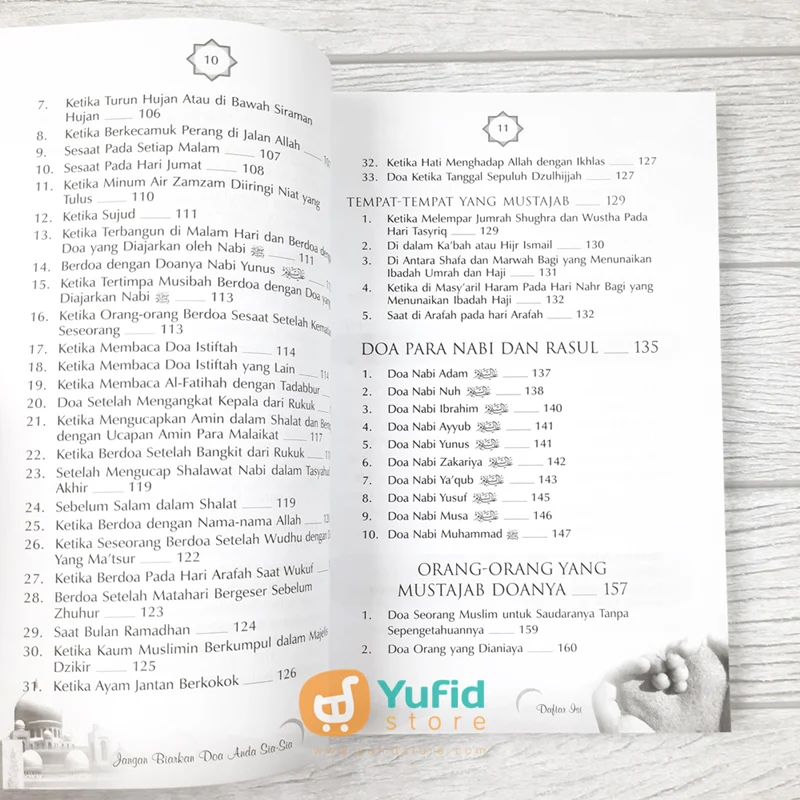 10
7. Ketika Turun Hujan Atau di Bawah Siraman
Hujan ____ 106
8. Ketika Berkecamuk Perang di Jalan Allah ____
9. Sesaat Pada Setiap Malam ____ 107
10. Sesaat Pada Hari Jumat ____ 108
11. Ketika Minum Air Zamzam Diiringi Niat yang
Tulus ____ 110
12. Ketika Sujud ____ 111
13. Ketika Terbangun di Malam Hari dan Berdoa
Doa yang Diajarkan oleh Nabi ﷺ ____ 111
14. Berdoa dengan Doanya Nabi Yunus ____
15. Ketika Tertimpa Musibah Berdoa dengan Doa yang
Diajarkan Nabi ﷺ ____ 113
16. Ketika Orang-orang Berdoa Sesaat Setelah
Seseorang ____ 113
17. Ketika Membaca Doa Istiftah ____ 114
18. Ketika Membaca Doa Istiftah yang Lain ____ 114
19. Ketika Membaca Al-Fatihah dengan Tadabbur ____
20. Doa Setelah Mengangkat Kepala dari Rukuk ____
21. Ketika Mengucapkan Amin dalam Shalat dan
dengan Ucapan Amin Para Malaikat ____ 117
22. Ketika Berdoa Setelah Bangkit dari Rukuk ____
23. Setelah Mengucap Shalawat Nabi dalam
Akhir ____ 119
24. Sebelum Salam dalam Shalat ____ 119
25. Ketika Berdoa dengan Nama-nama Allah ____
26. Ketika Seseorang Berdoa Setelah Wudhu dengan
Yang Ma'tsur ____ 122
27. Ketika Berdoa Pada Hari Arafah Saat Wukuf ____
28. Berdoa Setelah Matahari Bergeser Sebelum
Zhuhur ____ 123
29. Saat Bulan Ramadhan ____ 124
30. Ketika Kaum Muslimin Berkumpul dalam
Dzikir ____ 125
31. Ketika Ayam Jantan Berkokok ____ 126
Jangan Biarkan Doa Anda Sia-Sia
11
32. Ketika Hati Menghadap Allah dengan Ikhlas ____ 127
33. Doa Ketika Tanggal Sepuluh Dzulhijjah ____ 127
TEMPAT-TEMPAT YANG MUSTAJAB ____ 129
1. Ketika Melempar Jumrah Shughra dan Wustha Pada
Hari Tasyriq ____ 129
2. Di dalam Ka'bah atau Hijr Ismail ____ 130
3. Di Antara Shafa dan Marwah Bagi yang Menunaikan
Ibadah Umrah dan Haji ____ 131
4. Ketika di Masy'aril Haram Pada Hari Nahr Bagi yang
Menunaikan Ibadah Haji ____ 132
5. Saat di Arafah pada hari Arafah ____ 132
DOA PARA NABI DAN RASUL ____ 135
1. Doa Nabi Adam ____ 137
2. Doa Nabi Nuh ____ 138
3. Doa Nabi Ibrahim ____ 140
4. Doa Nabi Ayyub ____ 141
5. Doa Nabi Yunus ____ 141
6. Doa Nabi Zakariya ____ 142
7. Doa Nabi Ya'qub ____ 143
8. Doa Nabi Yusuf ____ 145
9. Doa Nabi Musa ____ 146
10. Doa Nabi Muhammad ﷺ ____ 147
ORANG-ORANG YANG
MUSTAJAB DOANYA ____ 157
1. Doa Seorang Muslim untuk Saudaranya Tanpa
Sepengetahuannya ____ 159
2. Doa Orang yang Dianiaya ____ 160
Daftar Isi
Yufid
store
www.yufidstore.com